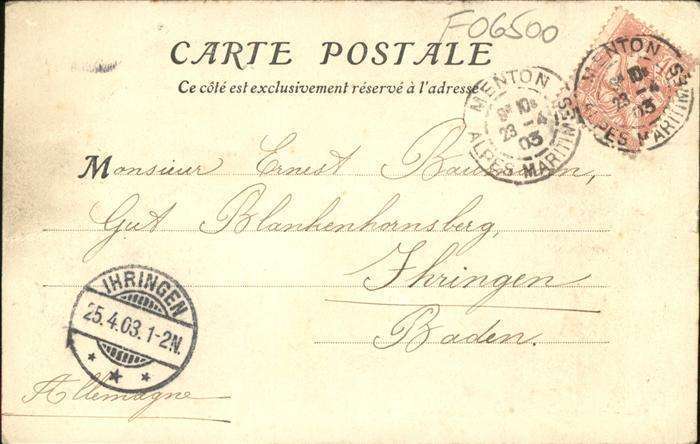 F06500
CARTE POSTALE
Ce côté est exclusivement réservé à l'adresse
MENTON
9E 10M
23 -4
03
ALPES MARITIMES
MENTON
9E 10M
23 -4
03
ALPES MARITIMES
Monsieur Ernest
Gut Blankenhornsberg,
Ihringen
Baden.
IHRINGEN
25.4.03.1-2N.
Allemagne